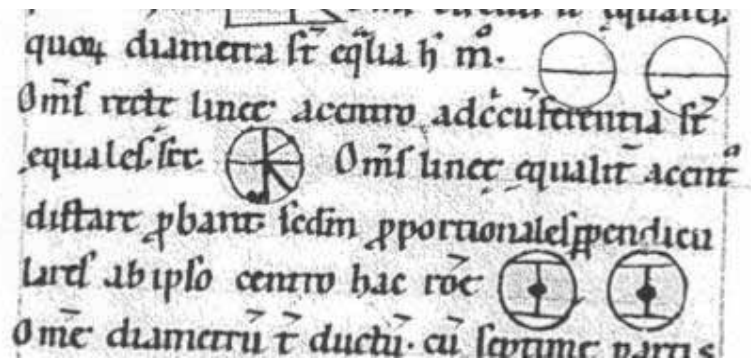 quoꝝ diametra st̄ eq̄lia h̄ m̊.
Om̄s recte lineę acentro adc̄cūferentia st̄
equales. sic. Om̄s lineę equalit̄ acent̊
distare ꝓbant̄ scdm ꝓportionales ꝑpendicu
lares ab ipso centro hac roē
Om̄e diametrū t̄ ductū. cū septime partis